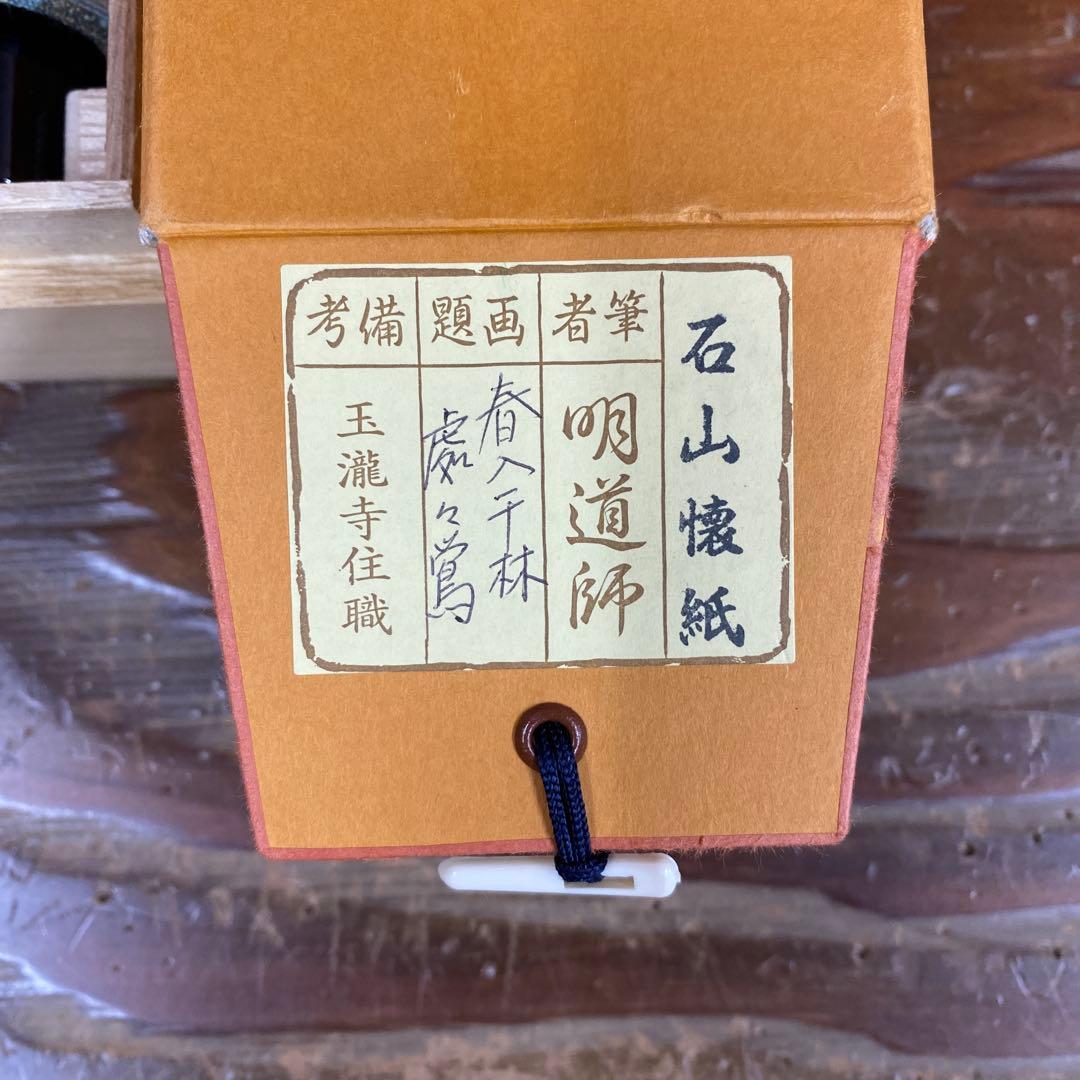 石山懐紙
筆者
明道師
画題
春入千林
處々鶯
備考
玉瀧寺住職